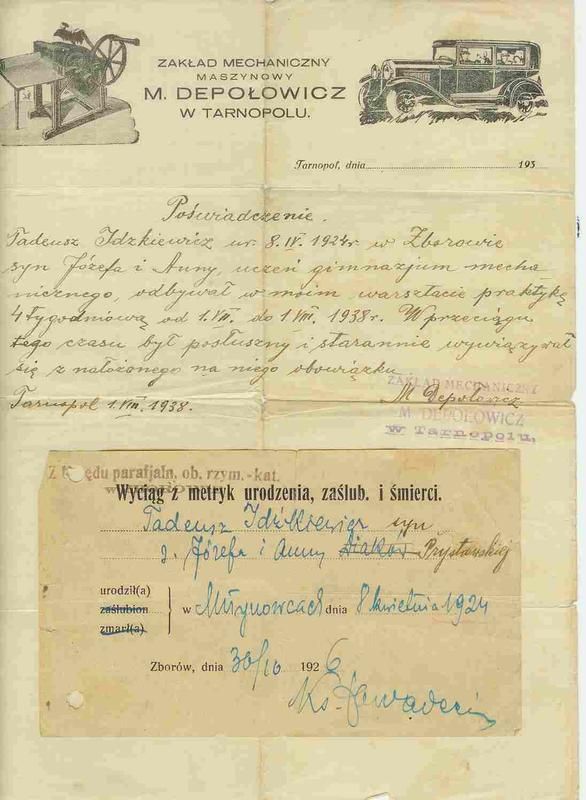 ZAKŁAD MECHANICZNY
MASZYNOWY
M. DEPOŁOWICZ
W TARNOPOLU.
Tarnopol, dnia 193
Poświadczenie.
Tadeusz Idzkiewicz ur. 8.IV. 1924r. w Zborowie
syn Józefa i Anny, uczeń gimnazjum mecha-
nicznego, odbywał w moim warsztacie praktykę
4 tygodniową od 1.VII. do 1 VIII. 1938 r. W przeciągu
tego czasu był posłuszny i starannie wywiązywał
się z nałożonego na niego obowiązku
ZAKŁAD MECHANICZNY
Tarnopol 1.VIII. 1938. M Depołowicz
M. DEPOŁOWICZ
w Tarnopolu,
Z Urzędu parafjaln, ob. rzym.-kat.
Wyciąg z metryk urodzenia, zaślub. i śmierci.
Tadeusz Idźkiewicz syn
Józefa i Anny Diaków Prystawskiej
urodził(a)
zaślubion w Młynowcach dnia 8 kwietnia 1924
zmarł(a)
Zborów, dnia 30/10 1926
Ks.